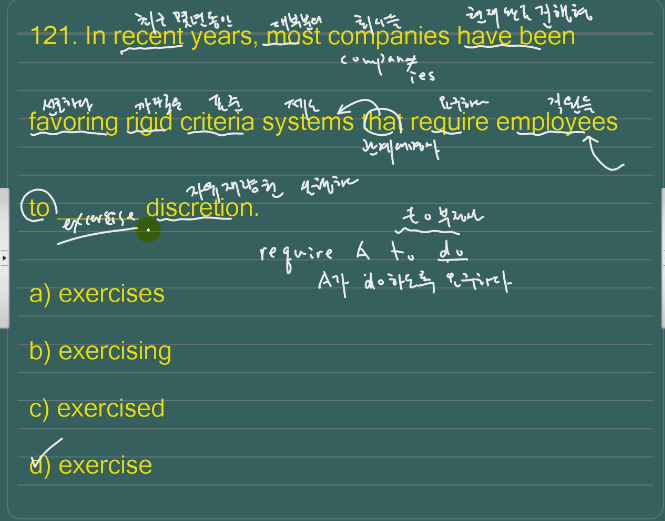 최근 몇년동안 대부분의 회사들 현재완료진행형
121. In recent years, most companies have been
company
ies
선호하다 까다로운 기준 제도 요구하다 직원들
favoring rigid criteria systems that require employees
관계대명사
자유재량권
to exercise discretion.
to부정사
require A to do
A가 do하도록 요구하다
a) exercises
b) exercising
c) exercised
d) exercise